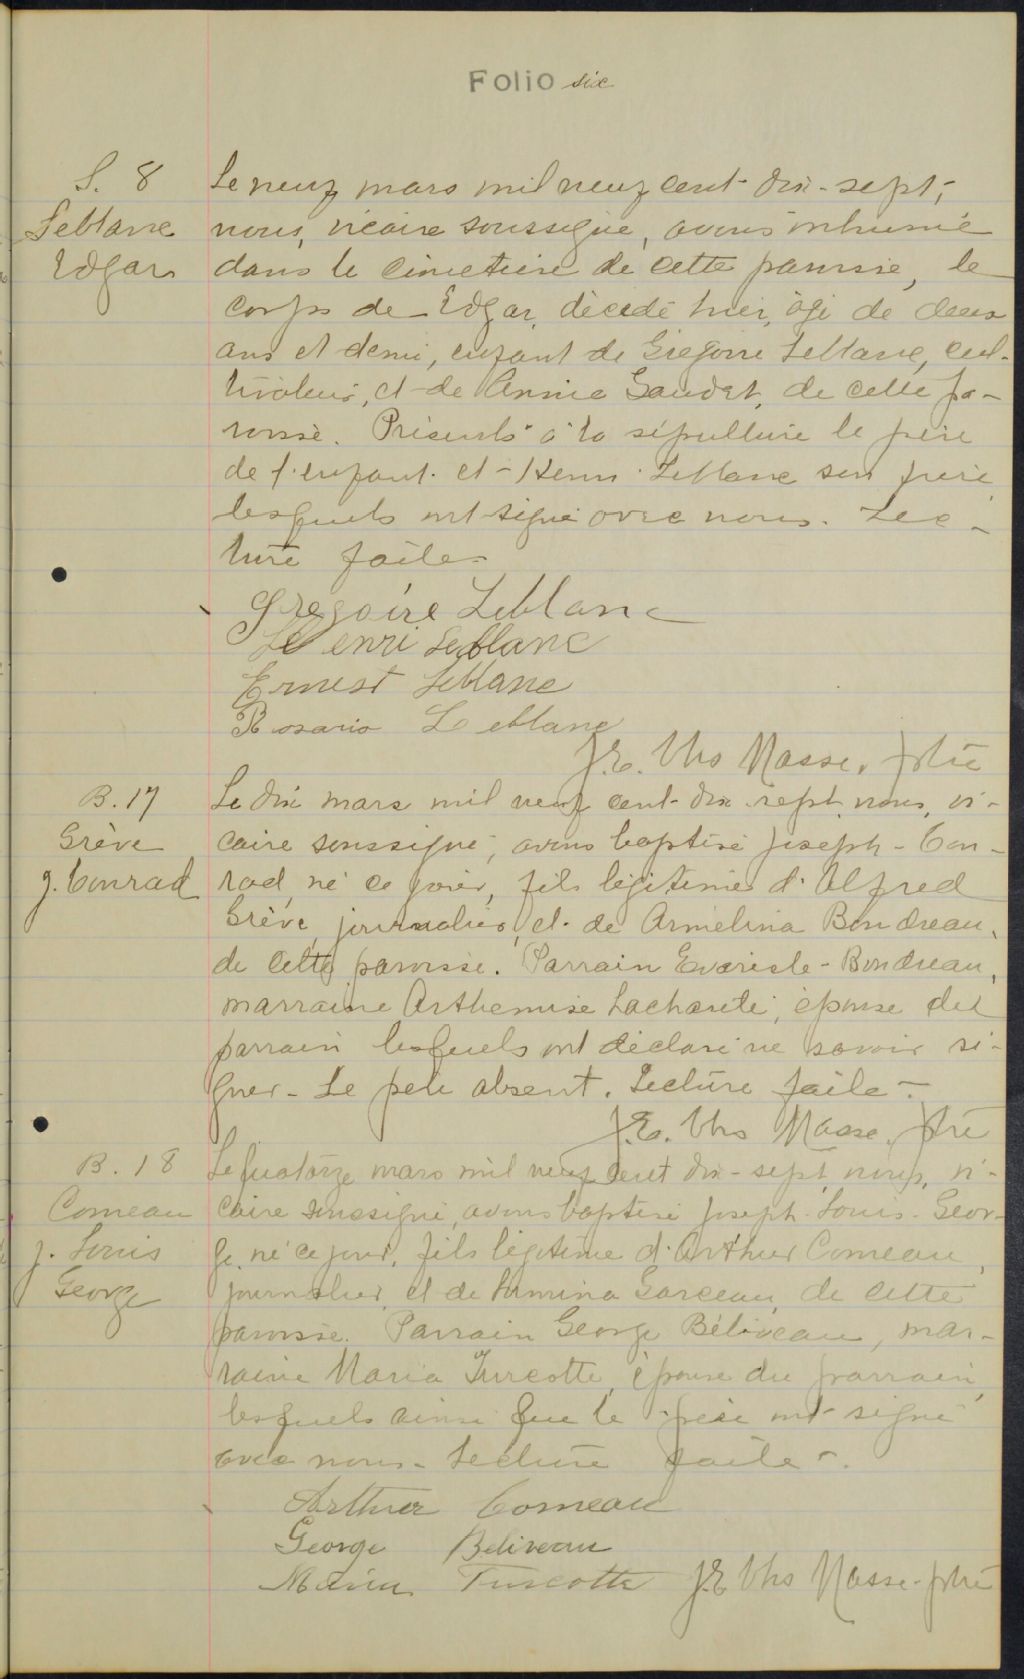 Folio six
S. 8
Leblanc
Edgar
Le neuf mars mil neuf cent dix-sept,
nous, vicaire soussigné, avons inhumé
dans le cimetière de cette paroisse, le
corps de Edgar, décédé hier, âgé de deux
ans et demi, enfant de Grégoire Leblanc, cul-
tivateur, et de Annie Gaudet, de cette pa-
roisse. Présents à la sépulture le père
de l'enfant et Henri Leblanc son frère
lesquels ont signé avec nous. Lec-
ture faite.
Gregoire Leblanc
Henri Leblanc
Ernest Leblanc
Rosario Leblanc
J.E. Ths Masse, ptre
B. 17
Grève
J. Conrad
Le dix mars mil neuf cent dix sept, nous, vi-
caire soussigné, avons baptisé Joseph-Con-
rad, né ce jour, fils légitime d'Alfred
Grève, journalier, et de Armélina Boudreau,
de cette paroisse. Parrain Evariste Boudreau,
marraine Arthemise Lacharité, épouse du
parrain lesquels ont déclaré ne savoir si-
gner. Le père absent. Lecture faite.
J.E. Ths Masse, ptre
B. 18
Comeau
J. Louis
George
Le quatorze mars mil neuf cent dix-sept, nous, vi-
caire soussigné, avons baptisé Joseph-Louis-Geor-
ge, né ce jour, fils légitime d'Arthur Comeau,
journalier, et de Lumina Garceau, de cette
paroisse. Parrain George Béliveau, mar-
raine Maria Turcotte, épouse du parrain,
lesquels ainsi que le père ont signé
avec nous. Lecture faite.
Arthur Comeau
George Beliveau
Maria Turcotte J.E Ths Masse ptre